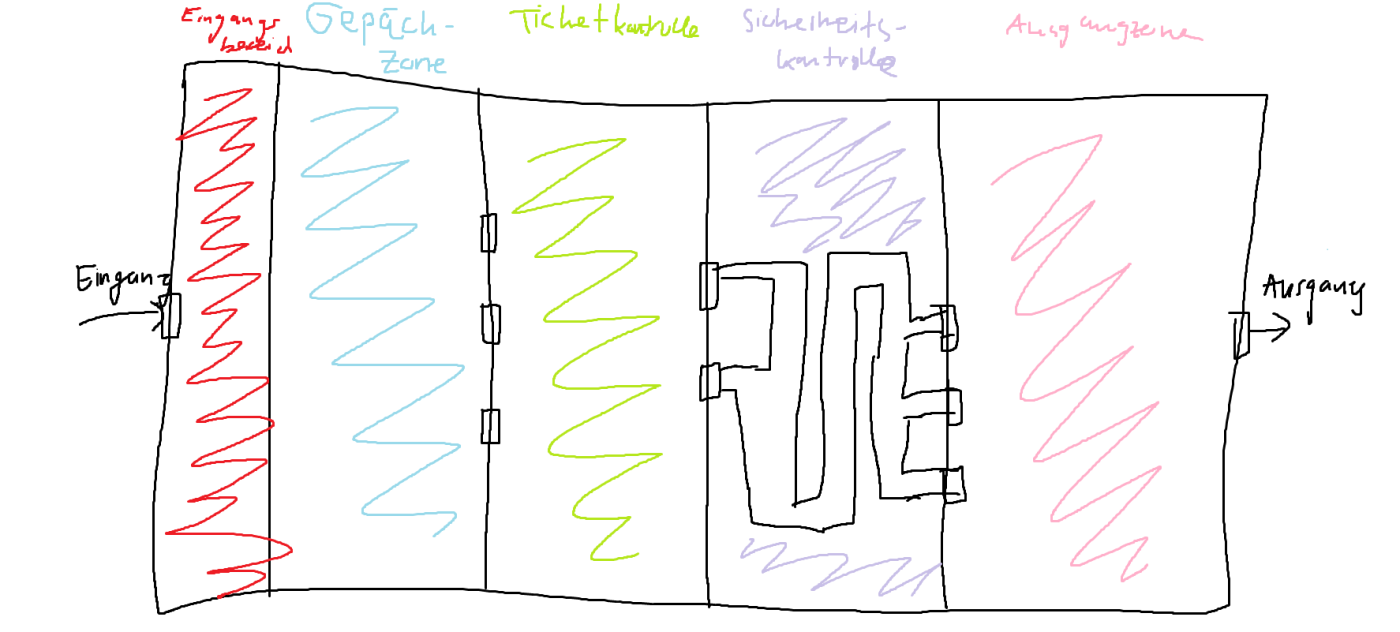 Eingangs
bereich
Gepäck-
Zone
Ticketkontrolle
Sicherheits-
kontrolle
Ausgangzone
Eingang
Ausgang